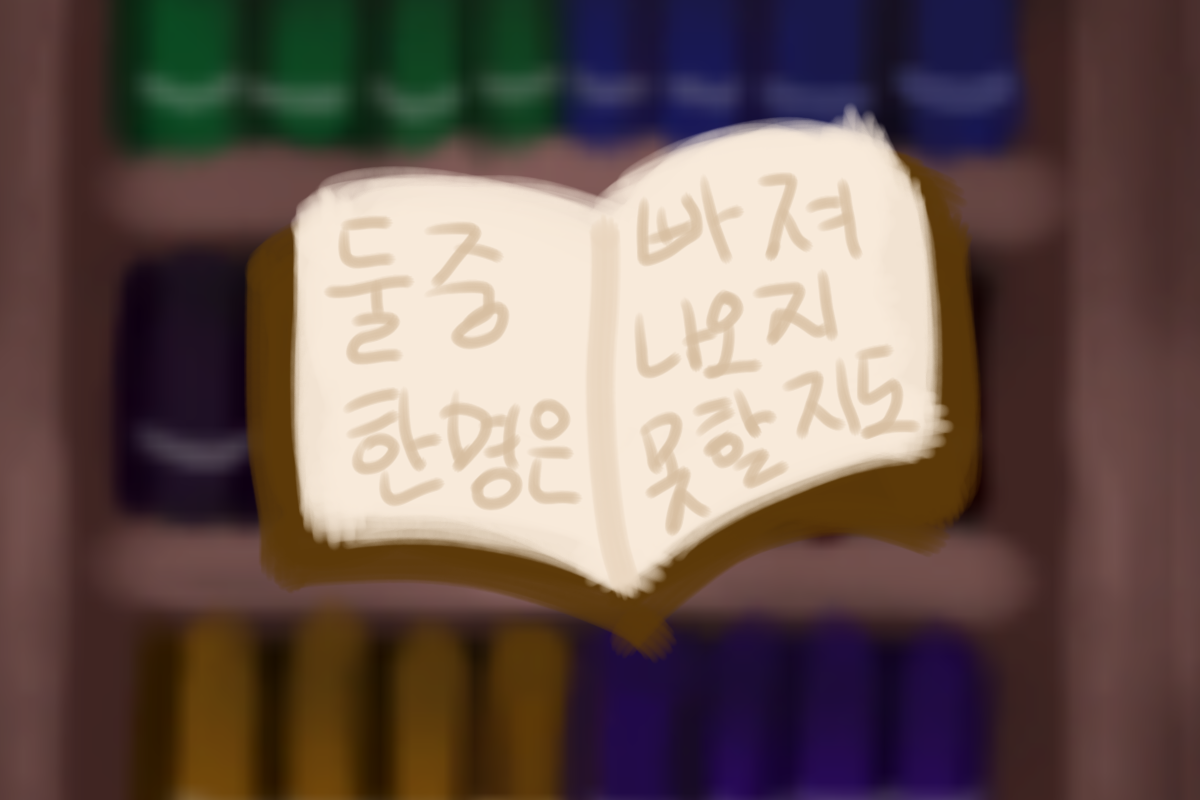 둘중
한명은
빠져
나오지
못할지도